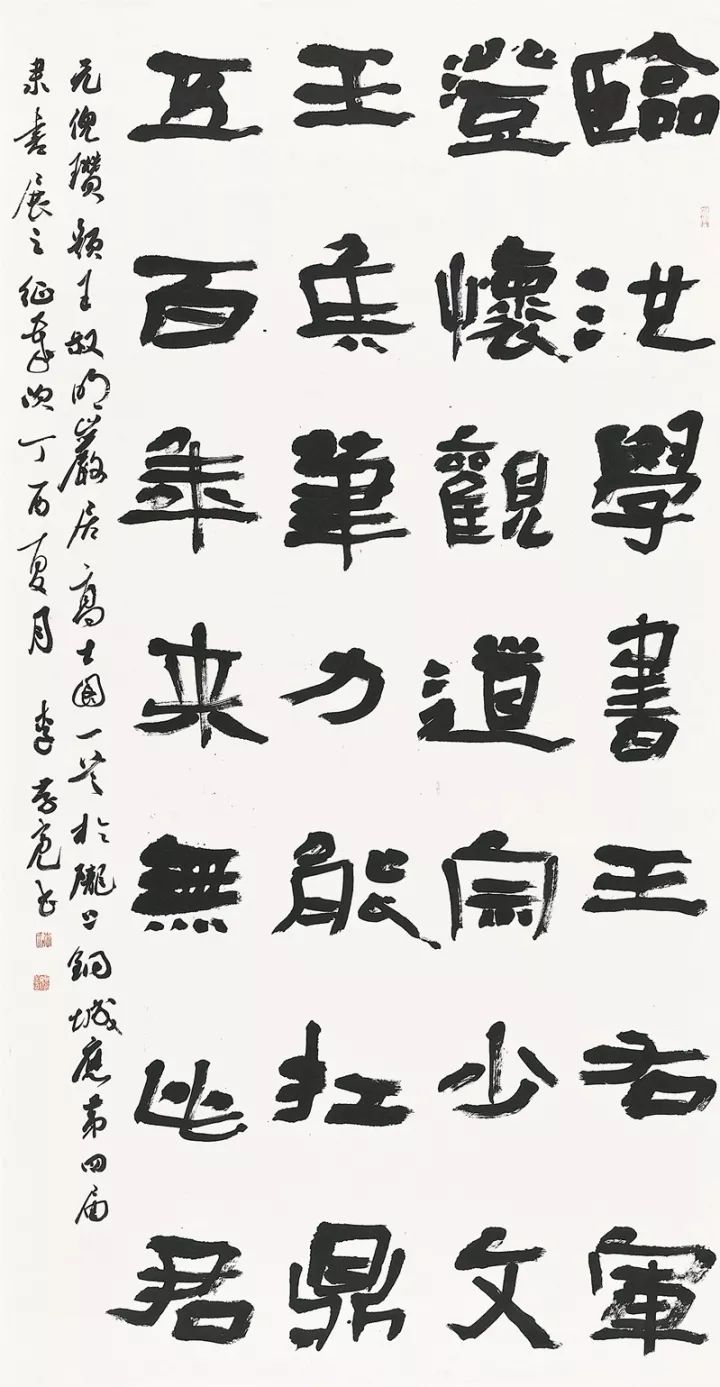 臨池學書王右軍
澄懷觀道宗少文
王侯筆力能扛鼎
五百年来無此君
元倪瓚題王叔明巖居高士圖一首於隴上銅城應第四届
隶書展之征歲次丁酉夏月 李書